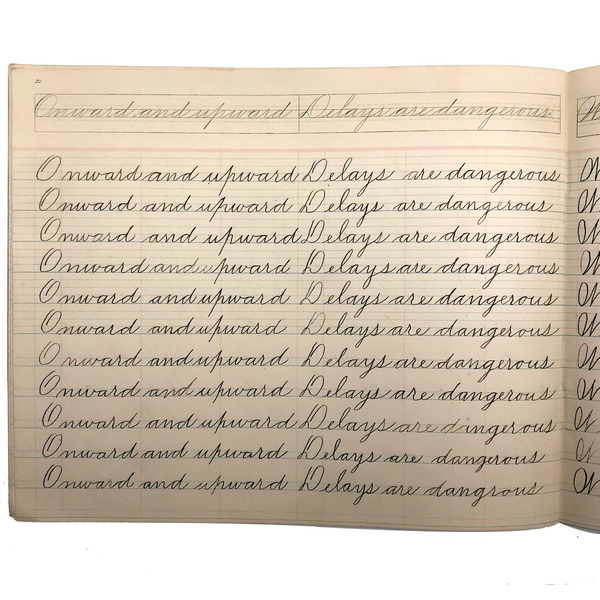 Onward and upward Delays are dangerous
Onward and upward Delays are dangerous
Onward and upward Delays are dangerous
Onward and upward Delays are dangerous
Onward and upward Delays are dangerous
Onward and upward Delays are dangerous
Onward and upward Delays are dangerous
Onward and upward Delays are dangerous
Onward and upward Delays are dangerous
Onward and upward Delays are dingerous
Onward and upward Delays are dangerous
Onward and upward Delays are dangrous